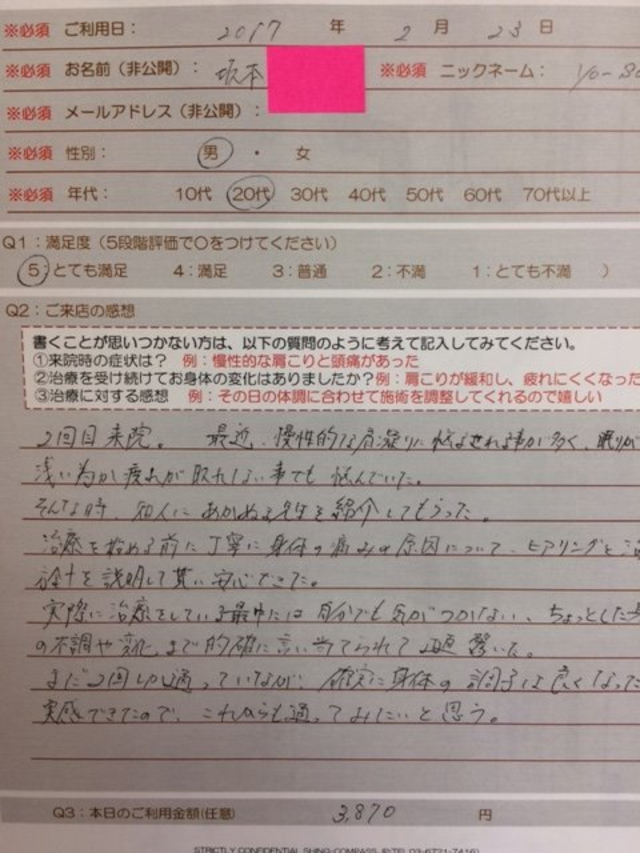 ※必須 ご利用日： 2017 年 2 月 23 日
※必須 お名前（非公開）： 坂本 ※必須 ニックネーム： Yo-
※必須 メールアドレス（非公開）：
※必須 性別： 男 ・ 女
※必須 年代： 10代 20代 30代 40代 50代 60代 70代以上
Q1：満足度（5段階評価で○をつけてください）
5：とても満足 4：満足 3：普通 2：不満 1：とても不満 ）
Q2：ご来店の感想
書くことが思いつかない方は、以下の質問のように考えて記入してみてください。
①来院時の症状は？ 例：慢性的な肩こりと頭痛があった
②治療を受け続けてお身体の変化はありましたか？例：肩こりが緩和し、疲れにくくなった
③治療に対する感想 例：その日の体調に合わせて施術を調整してくれるので嬉しい
2回目来院。 最近、慢性的な肩凝りに悩まされる事が多く、眠りが
浅い為か疲れが取れない事でも悩んでいた。
そんな時、知人にあかぬる先生を紹介してもらった。
治療を始める前に丁寧に身体の痛みの原因について、ヒアリングと治
方針を説明して貰い安心できた。
実際に治療をしている最中には自分でも気がつかない、ちょっとした
の不調や変化まで的確に言い当てられて 驚いた。
まだ2回しか通っていないが、確実に身体の調子は良くなった
実感できたので、これからも通ってみたいと思う。
Q3：本日のご利用金額(任意) 3,870 円
STRICTLY CONFIDENTIAL SHINQ-COMPASS JP.TEL 03-6721-7416)